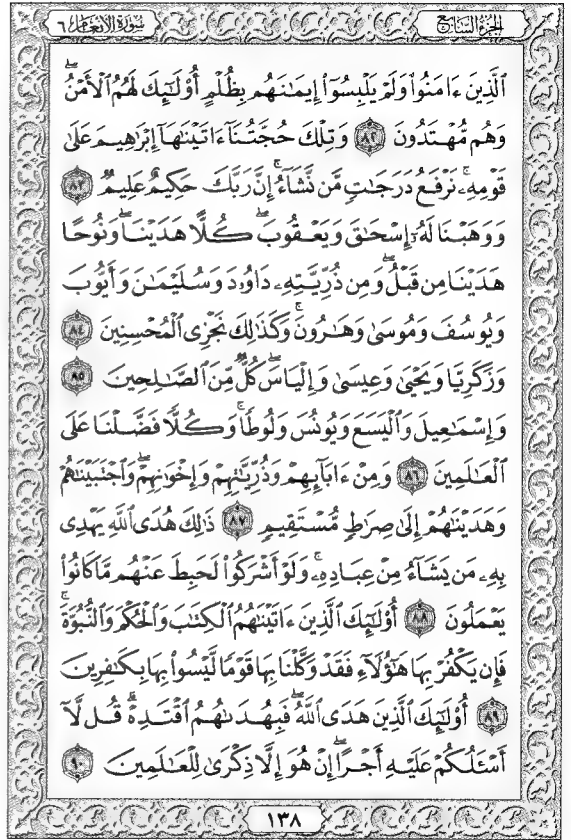 سورة الأنعام ٦
الجزء السابع
الَّذِينَ ءَامَنُوا۟ وَلَمْ يَلْبِسُوٓا۟ إِيمَـٰنَهُم بِظُلْمٍ أُو۟لَـٰٓئِكَ لَهُمُ ٱلْأَمْنُ ۖ
وَهُم مُّهْتَدُونَ ٨٢ وَتِلْكَ حُجَّتُنَآ ءَاتَيْنَـٰهَآ إِبْرَٰهِيمَ عَلَىٰ
قَوْمِهِۦ ۚ نَرْفَعُ دَرَجَـٰتٍ مَّن نَّشَآءُ ۗ إِنَّ رَبَّكَ حَكِيمٌ عَلِيمٌ ٨٣
وَوَهَبْنَا لَهُۥٓ إِسْحَـٰقَ وَيَعْقُوبَ ۚ كُلًّا هَدَيْنَا ۚ وَنُوحًا
هَدَيْنَا مِن قَبْلُ ۖ وَمِن ذُرِّيَّتِهِۦ دَاوُۥدَ وَسُلَيْمَـٰنَ وَأَيُّوبَ
وَيُوسُفَ وَمُوسَىٰ وَهَـٰرُونَ ۚ وَكَذَٰلِكَ نَجْزِى ٱلْمُحْسِنِينَ ٨٤
وَزَكَرِيَّا وَيَحْيَىٰ وَعِيسَىٰ وَإِلْيَاسَ ۖ كُلٌّ مِّنَ ٱلصَّـٰلِحِينَ ٨٥
وَإِسْمَـٰعِيلَ وَٱلْيَسَعَ وَيُونُسَ وَلُوطًا ۚ وَكُلًّا فَضَّلْنَا عَلَى
ٱلْعَـٰلَمِينَ ٨٦ وَمِنْ ءَابَآئِهِمْ وَذُرِّيَّـٰتِهِمْ وَإِخْوَٰنِهِمْ ۖ وَٱجْتَبَيْنَـٰهُمْ
وَهَدَيْنَـٰهُمْ إِلَىٰ صِرَٰطٍ مُّسْتَقِيمٍ ٨٧ ذَٰلِكَ هُدَى ٱللَّهِ يَهْدِى
بِهِۦ مَن يَشَآءُ مِنْ عِبَادِهِۦ ۚ وَلَوْ أَشْرَكُوا۟ لَحَبِطَ عَنْهُم مَّا كَانُوا۟
يَعْمَلُونَ ٨٨ أُو۟لَـٰٓئِكَ ٱلَّذِينَ ءَاتَيْنَـٰهُمُ ٱلْكِتَـٰبَ وَٱلْحُكْمَ وَٱلنُّبُوَّةَ ۚ
فَإِن يَكْفُرْ بِهَا هَـٰٓؤُلَآءِ فَقَدْ وَكَّلْنَا بِهَا قَوْمًا لَّيْسُوا۟ بِهَا بِكَـٰفِرِينَ
٨٩ أُو۟لَـٰٓئِكَ ٱلَّذِينَ هَدَى ٱللَّهُ ۖ فَبِهُدَىٰهُمُ ٱقْتَدِهْ ۗ قُل لَّآ
أَسْـَٔلُكُمْ عَلَيْهِ أَجْرًا ۖ إِنْ هُوَ إِلَّا ذِكْرَىٰ لِلْعَـٰلَمِينَ ٩٠
١٣٨